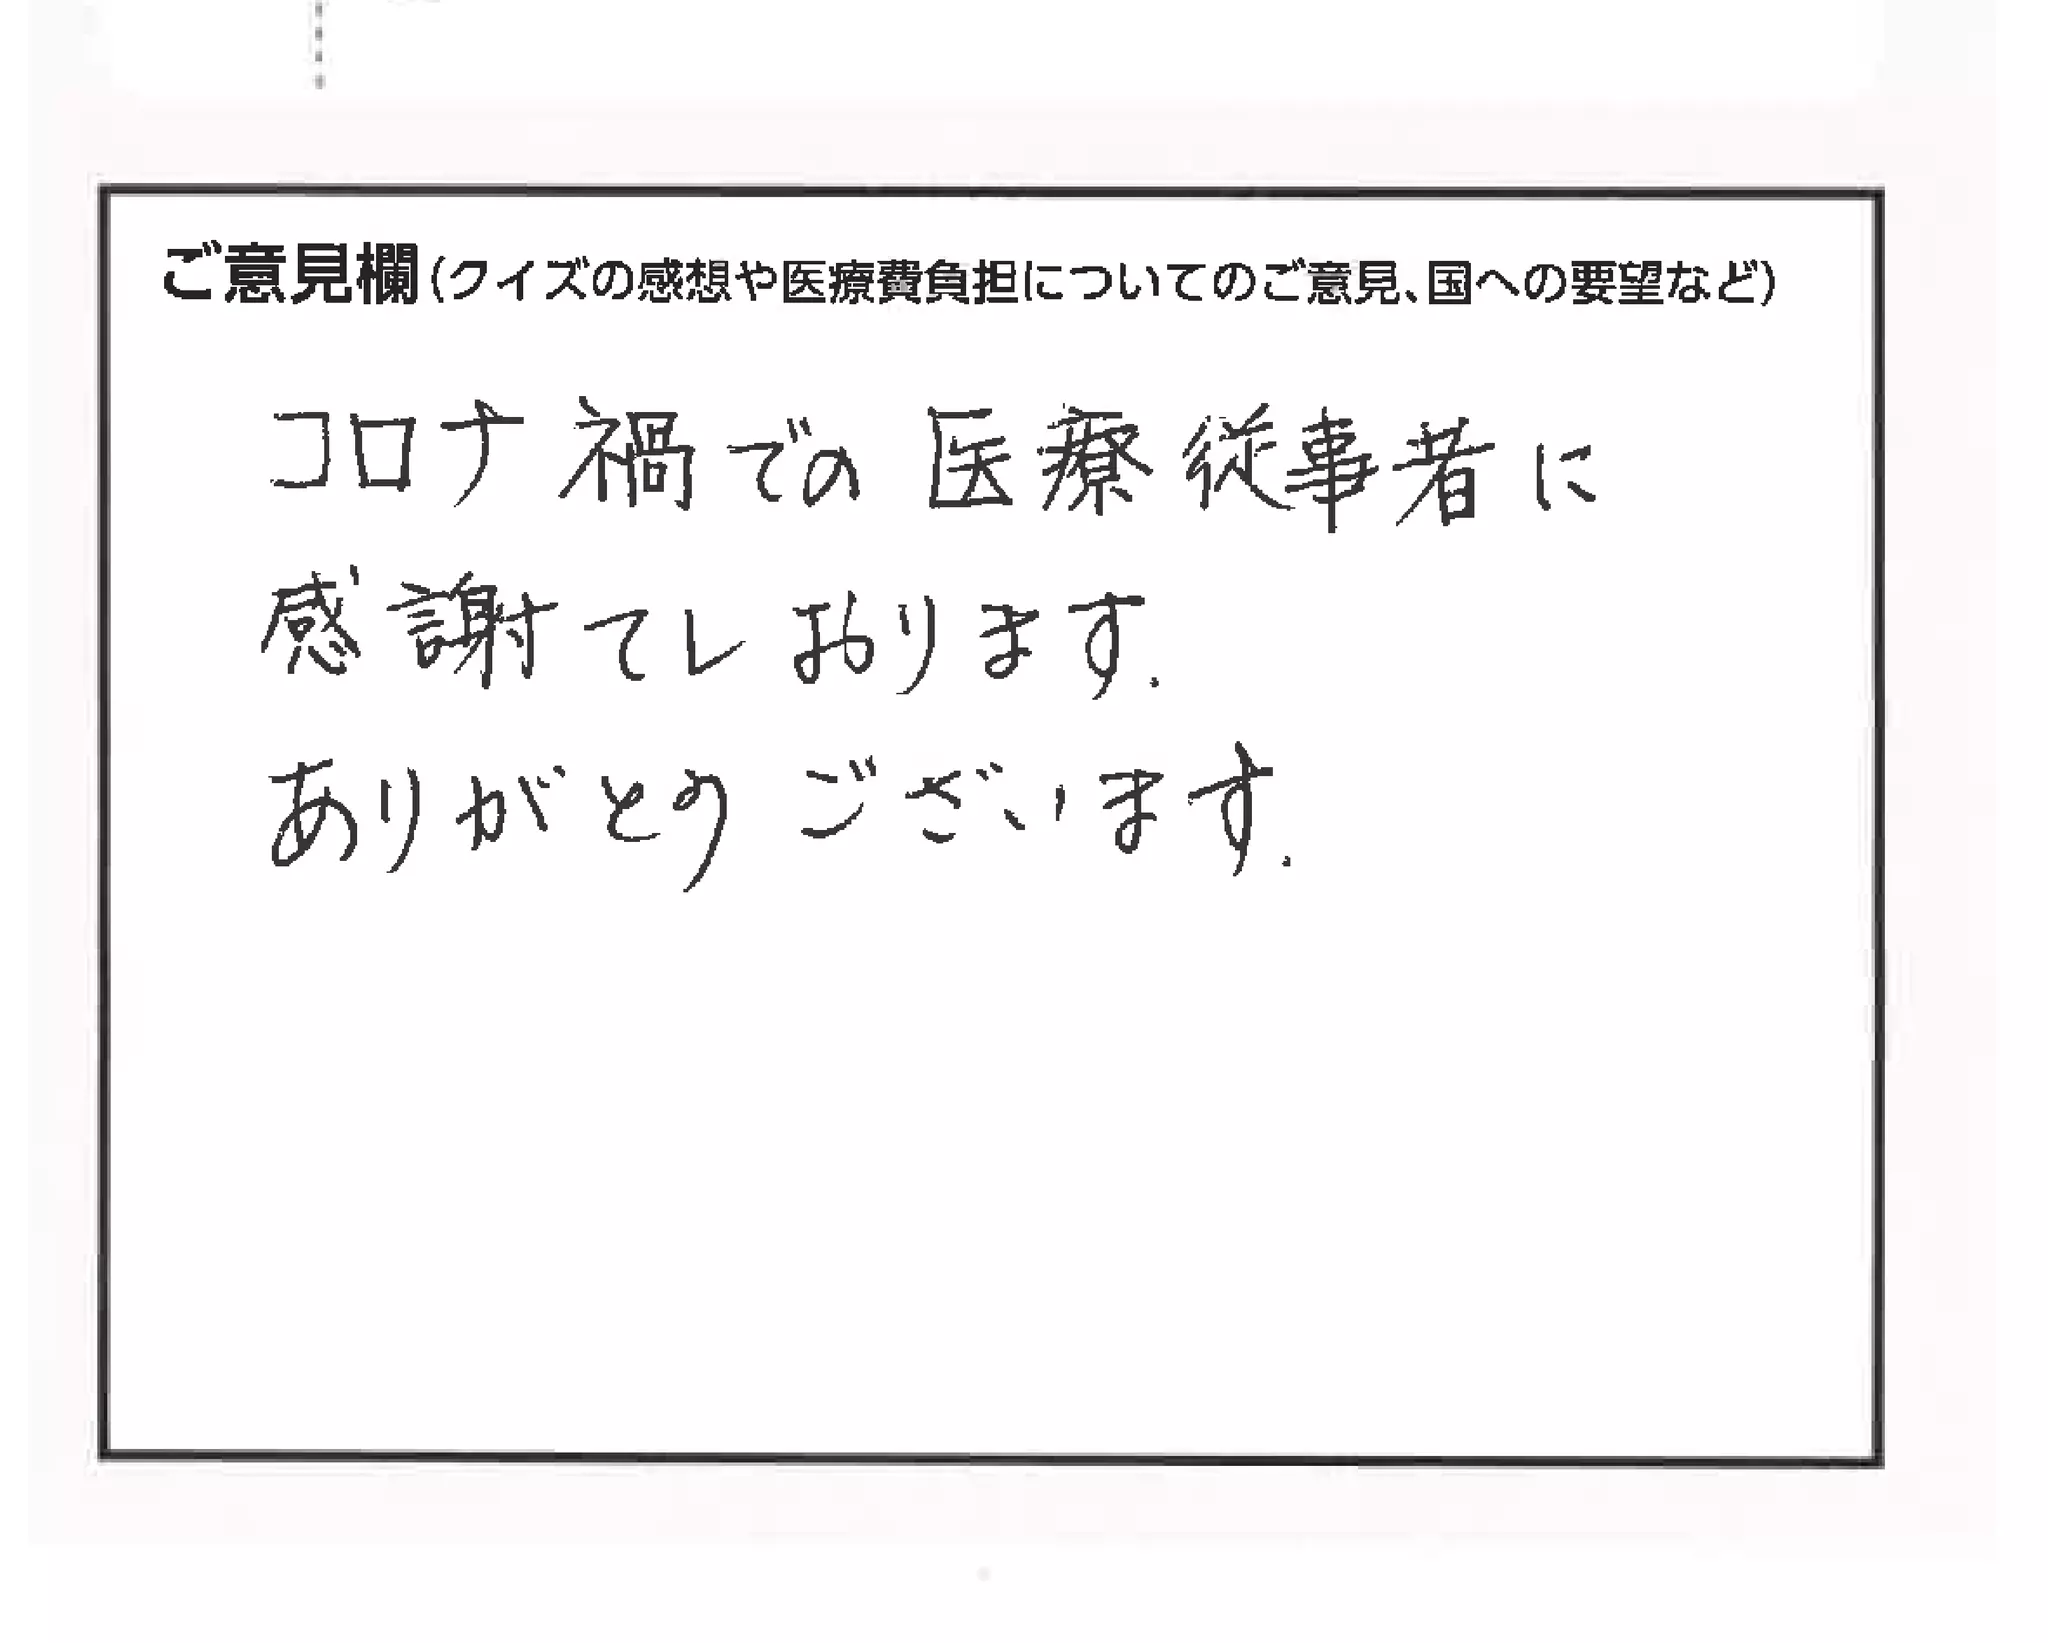 ご意見欄(クイズの感想や医療費負担についてのご意見、国への要望など)
コロナ禍での医療従事者に
感謝てしおります.
ありがとうございます.